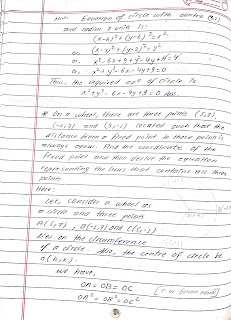 Now, Equation of circle with centre (3,2)
and radius 2 units is:
(x-h)² + (y-k)² = r²
or, (x-3)² + (y-2)² = 2²
or, x² - 6x + 9 + y² - 4y + 4 = 4
or, x² + y² - 6x - 4y + 9 = 0
Thus, the required eqn of circle is
x² + y² - 6x - 4y + 9 = 0 Ans.
* On a wheel, there are three points (5,7),
(-1,7) and (5,-1) located such that the
distance from a fixed point to these points is
always equal. Find the coordinate of the
fixed point and then derive the equation
representing the locus that contains all three
points.
Here:
Let, consider a wheel as
a circle and three points
A(5,7), B(-1,7) and C(5,-1)
lies on the circumference
of a circle. Also, the centre of circle be
O(h,k).
we have,
OA = OB = OC
OA² = OB² = OC²